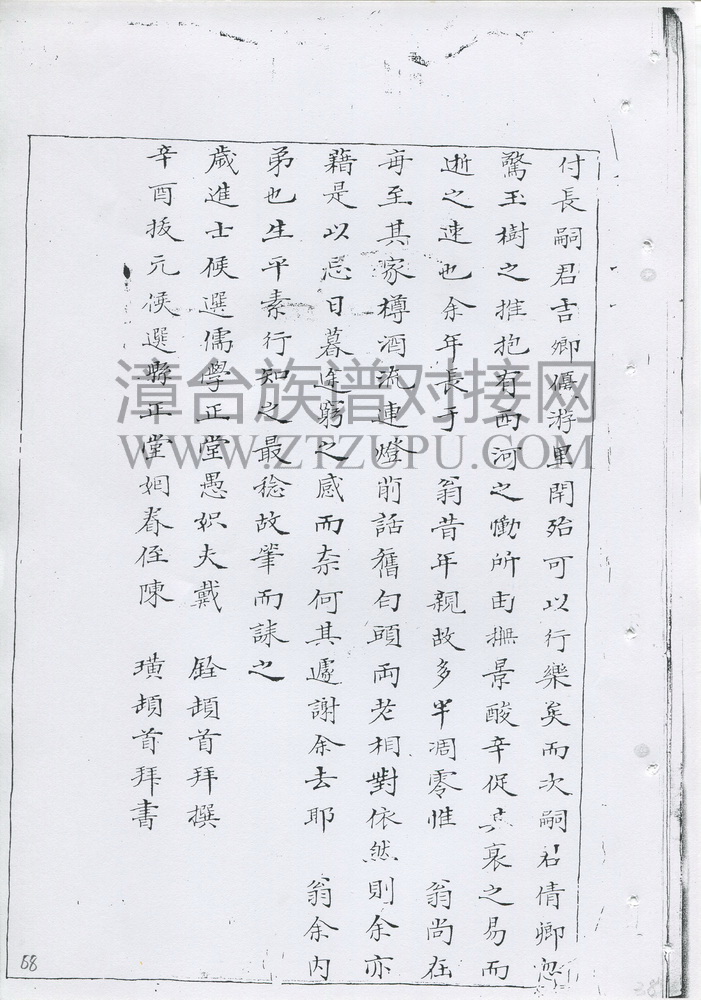 付長嗣君吉卿儷游里閈殆可以行樂矣而次嗣君倩卿忽
驚玉樹之摧抱有西河之慟所由撫景酸辛促其衰之易而
逝之速也余年長于 翁昔年親故多半凋零惟 翁尚在
每至其家樽酒流連燈前話舊白頭兩老相對依然則余亦
藉是以忘日暮途窮之感而奈何其遽謝余去耶 翁余内
弟也生平素行知之最稔故筆而誄之
歲進士候選儒學正堂愚姻夫戴 銓頓首拜撰
辛酉拔元候選縣正堂姻眷侄陳 璜頓首拜書
漳台族谱对接网
WWW.ZTZUPU.COM
68